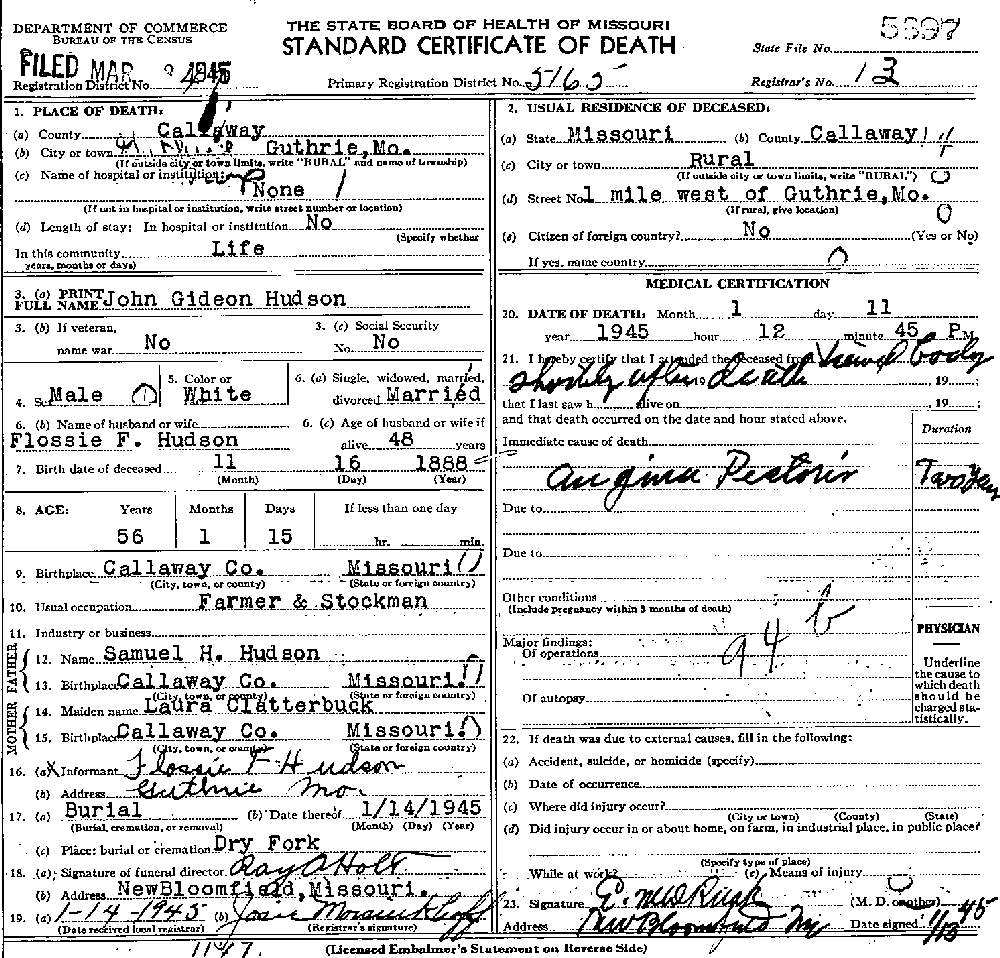 DEPARTMENT OF COMMERCE
BUREAU OF THE CENSUS
THE STATE BOARD OF HEALTH OF MISSOURI
STANDARD CERTIFICATE OF DEATH
State File No. 5697
FILED MAR 1945
Registration District No.
Primary Registration District No. 5165
Registrar's No. 13
1. PLACE OF DEATH:
(a) County Callaway
(b) City or town Guthrie, Mo.
(If outside city or town limits, write "RURAL" and name of township)
(c) Name of hospital or institution:
None
(If not in hospital or institution, write street number or location)
(d) Length of stay: In hospital or institution No
(Specify whether
In this community Life
years, months or days)
2. USUAL RESIDENCE OF DECEASED:
(a) State Missouri (b) County Callaway
(c) City or town Rural
(If outside city or town limits, write "RURAL")
(d) Street No. 1 mile west of Guthrie, Mo.
(If rural, give location)
(e) Citizen of foreign country? No (Yes or No)
If yes, name country
3. (a) PRINT FULL NAME John Gideon Hudson
3. (b) If veteran, name war No
3. (c) Social Security No. No
4. Sex Male
5. Color or White
6. (a) Single, widowed, married, divorced Married
6. (b) Name of husband or wife
Flossie F. Hudson
6. (c) Age of husband or wife if alive 48 years
7. Birth date of deceased 11 16 1888
(Month) (Day) (Year)
8. AGE: Years Months Days If less than one day
56 1 15 hr. min.
9. Birthplace Callaway Co. Missouri
(City, town, or county) (State or foreign country)
10. Usual occupation Farmer & Stockman
11. Industry or business
FATHER
12. Name Samuel H. Hudson
13. Birthplace Callaway Co. Missouri.
(City, town, or county) (State or foreign country)
MOTHER
14. Maiden name Laura Clatterbuck
15. Birthplace Callaway Co. Missouri.
(City, town, or county) (State or foreign country)
16. (a) Informant Flossie F Hudson
(b) Address Guthrie Mo.
17. (a) Burial (b) Date thereof 1/14/1945
(Burial, cremation, or removal) (Month) (Day) (Year)
(c) Place: burial or cremation Dry Fork
18. (a) Signature of funeral director Ray O Holt
(b) Address NewBloomfield, Missouri.
19. (a) 1-14-1945 (b) Josie
(Date received local registrar) (Registrar's signature)
MEDICAL CERTIFICATION
20. DATE OF DEATH: Month 1 day 11
year 1945 hour 12 minute 45 P M.
21. I hereby certify that I attended the deceased from Viewed body
shortly after death 19 ;
that I last saw h alive on 19 ;
and that death occurred on the date and hour stated above.
Duration
Immediate cause of death
Angina Pectoris Two Years
Due to
Due to
Other conditions
(Include pregnancy within 3 months of death)
94 b
Major findings:
Of operations
Of autopsy
PHYSICIAN
Underline
the cause to
which death
should be
charged sta-
tistically.
22. If death was due to external causes, fill in the following:
(a) Accident, suicide, or homicide (specify)
(b) Date of occurrence
(c) Where did injury occur?
(City or town) (County) (State)
(d) Did injury occur in or about home, on farm, in industrial place, in public place?
(Specify type of place)
While at work? (e) Means of injury
23. Signature E. M. Rush (M. D. or other)
Address New Bloomfield Mo Date signed 1/13 45
1147.
(Licensed Embalmer's Statement on Reverse Side)